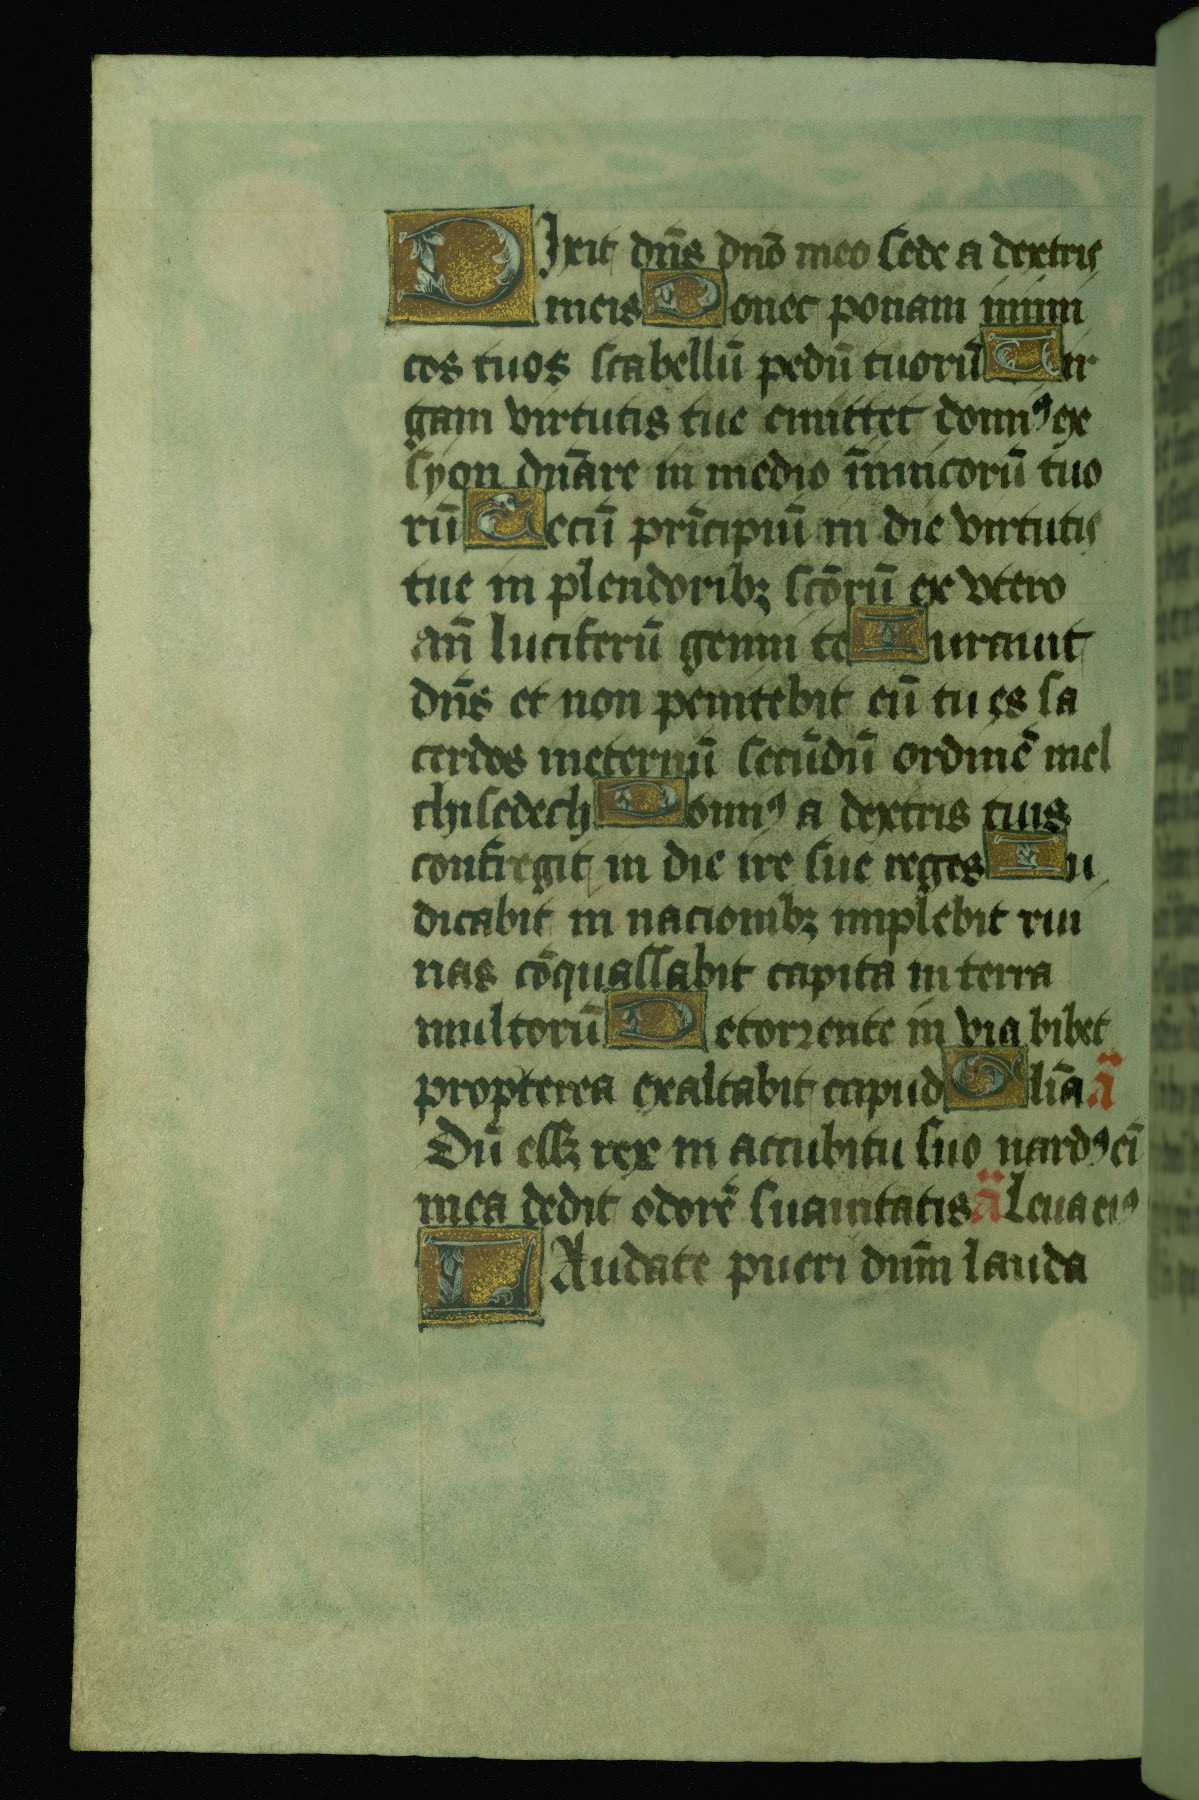 Dixit dn̄s dn̄o meo sede a dextris
meis Donec ponam inimi
cos tuos scabellū pedū tuorū Uir
gam virtutis tue emittet domiꝰ ex
syon dn̄are in medio īimicorū tuo
rū Tecū prīcipiū in die virtutis
tue in plendoribꝫ scōrū ex vtero
an̄ luciferū genui te Iurauit
dn̄s et non penitebit eū tu es sa
cerdos ineternū secūdū ordinē mel
chisedech Domiꝰ a dextris tuis
confregit in die ire sue reges Iu
dicabit in nacionibꝫ implebit rui
nas cōquassabit capita in terra
multorū Detorrente in via bibet
propterea exaltabit capud Glīa ā
Dū essꝫ rex in accubitu suo nardꝰ eī
mea dedit odorē suauitatis ā Leua eiꝰ
LAudate pueri dūm lauda